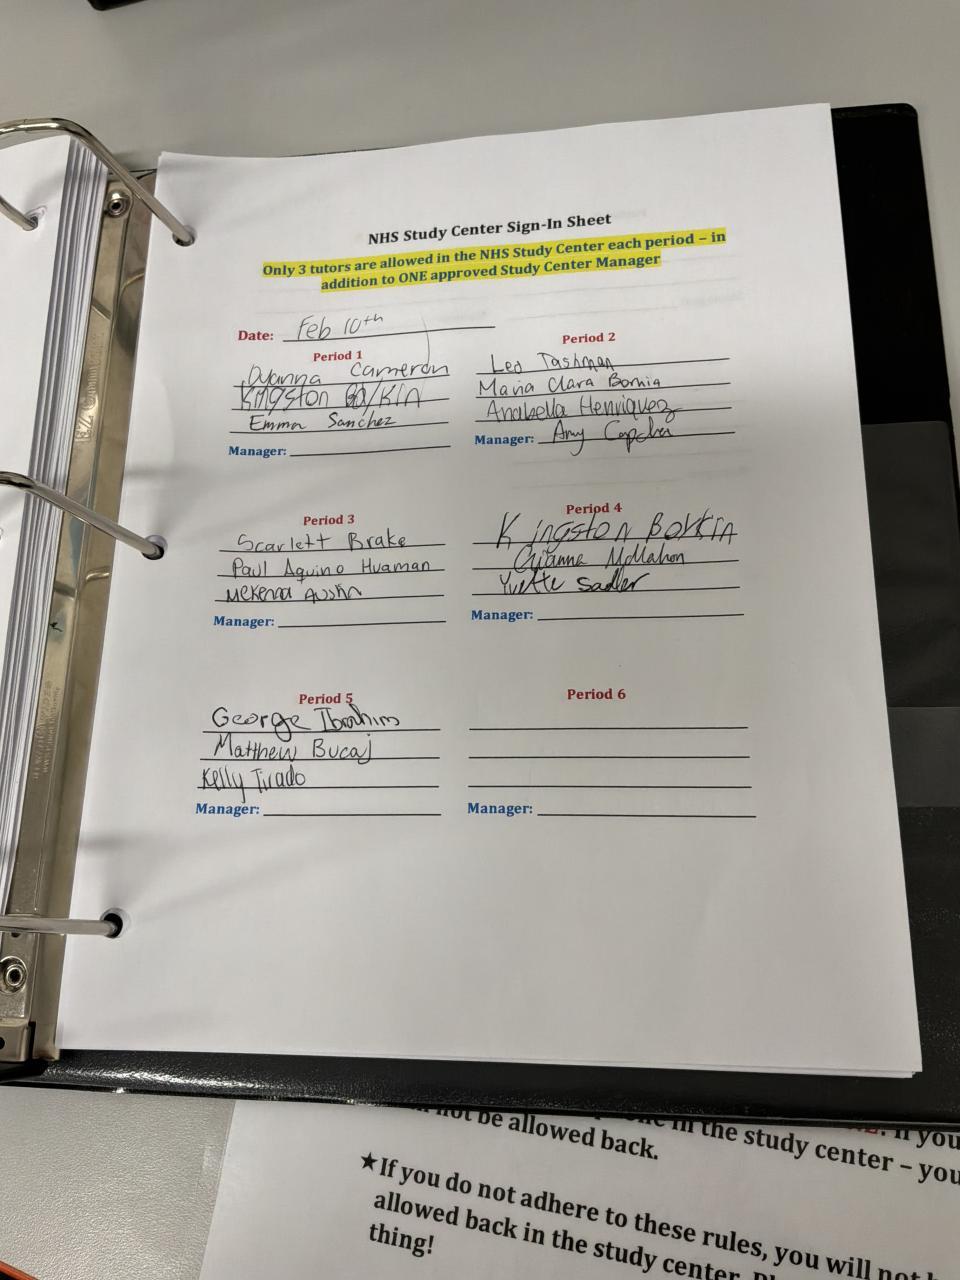 NHS Study Center Sign-In Sheet
Only 3 tutors are allowed in the NHS Study Center each period – in
addition to ONE approved Study Center Manager
Date: Feb 10th
Period 1
Dyanna Cameron
Kingston Botkin
Emma Sanchez
Manager:
Period 2
Leo Tashman
Maria Clara Bornia
Anabella Henriquez
Manager: Amy
Period 3
Scarlett Brake
Paul Aquino Huaman
McKenna Austin
Manager:
Period 4
Kingston Botkin
Gianna McMahon
Yvette Sadler
Manager:
Period 5
George Ibrahim
Matthew Bucaj
Kelly Tirado
Manager:
Period 6
Manager:
in the study center – you
not be allowed back.
★If you do not adhere to these rules, you will not
allowed back in the study center.
thing!